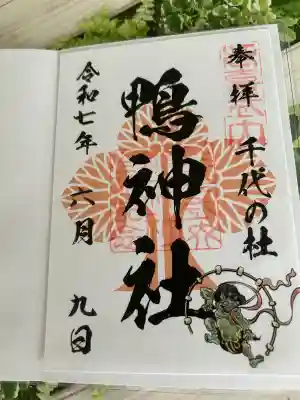 奉拝
千代の杜
鴨神社
令和七年 六月 九日